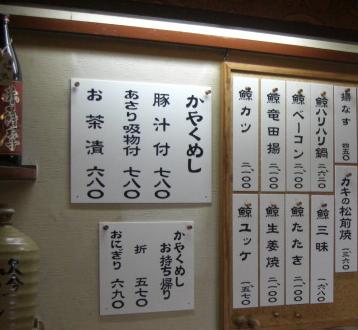 かやくめし
豚汁付 七八〇
あさり吸物付 七八〇
お茶漬 六八〇
かやくめし
お持ち帰り
折 五七〇
おにぎり 六九〇
揚なす 四五〇
鯨ハリハリ鍋
鯨ベーコン 二、一〇〇
鯨竜田揚 二、一〇〇
鯨カツ 二、一〇〇
カキの松前焼 一、三六〇
鯨三昧 一、六八〇
鯨たたき 二、一〇〇
鯨生姜焼 二、一〇〇
鯨ユッケ 一、五七〇